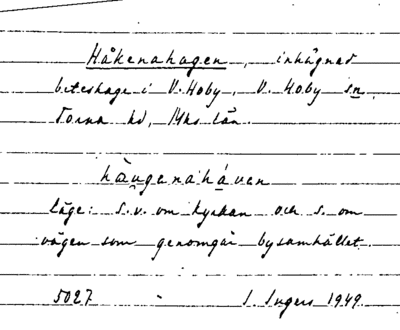 Håkenahagen, inhägnad
beteshage i V. Hoby, V. Hoby sn,
Torna hd, Mhs län.
hàu̯genahá̀ven
läge: s.v. om kyrkan och s. om
vägen som genomgår bysamhället.
5027 I. Ingers 1949.